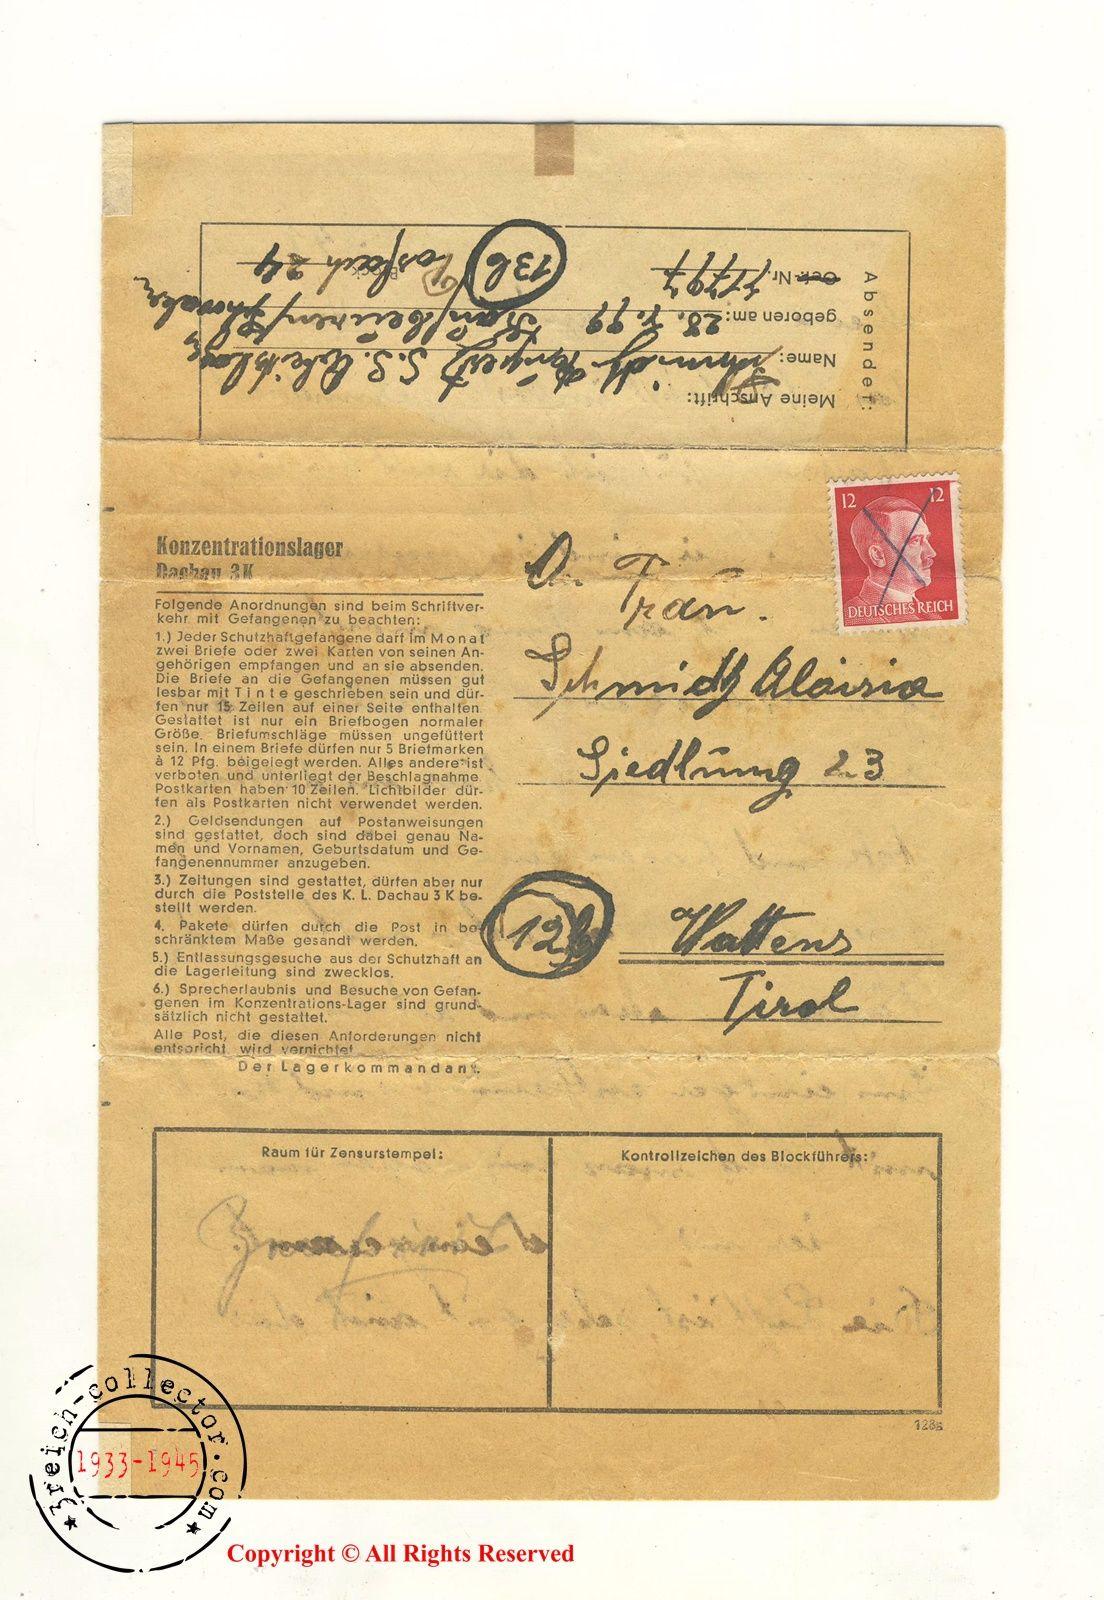 Absender:
Meine Anschrift:
Name: Schmidt S.S. Arbeitslager
geboren am: 28. 99
Kaufbeuren/Schwaben
Gef.-Nr.
Postfach 24
13b
12 12
DEUTSCHES REICH
Konzentrationslager
Dachau 3K
Folgende Anordnungen sind beim Schriftver-
kehr mit Gefangenen zu beachten:
1.) Jeder Schutzhaftgefangene darf im Monat
zwei Briefe oder zwei Karten von seinen An-
gehörigen empfangen und an sie absenden.
Die Briefe an die Gefangenen müssen gut
lesbar mit Tinte geschrieben sein und dür-
fen nur 15 Zeilen auf einer Seite enthalten.
Gestattet ist nur ein Briefbogen normaler
Größe. Briefumschläge müssen ungefüttert
sein. In einem Briefe dürfen nur 5 Briefmarken
à 12 Pfg. beigelegt werden. Alles andere ist
verboten und unterliegt der Beschlagnahme.
Postkarten haben 10 Zeilen. Lichtbilder dür-
fen als Postkarten nicht verwendet werden.
2.) Geldsendungen auf Postanweisungen
sind gestattet, doch sind dabei genau Na-
men und Vornamen, Geburtsdatum und Ge-
fangenennummer anzugeben.
3.) Zeitungen sind gestattet, dürfen aber nur
durch die Poststelle des K. L. Dachau 3 K be-
stellt werden.
4. Pakete dürfen durch die Post in be-
schränktem Maße gesandt werden.
5.) Entlassungsgesuche aus der Schutzhaft an
die Lagerleitung sind zwecklos.
6.) Sprecherlaubnis und Besuche von Gefan-
genen im Konzentrations-Lager sind grund-
sätzlich nicht gestattet.
Alle Post, die diesen Anforderungen nicht
entspricht, wird vernichtet.
Der Lagerkommandant.
An Frau.
Schmidt Aloisia
Siedlung 23
12b
Wattens
Tirol
Raum für Zensurstempel:
Kontrollzeichen des Blockführers:
128s
3reich-collector.com
1933-1945
Copyright © All Rights Reserved